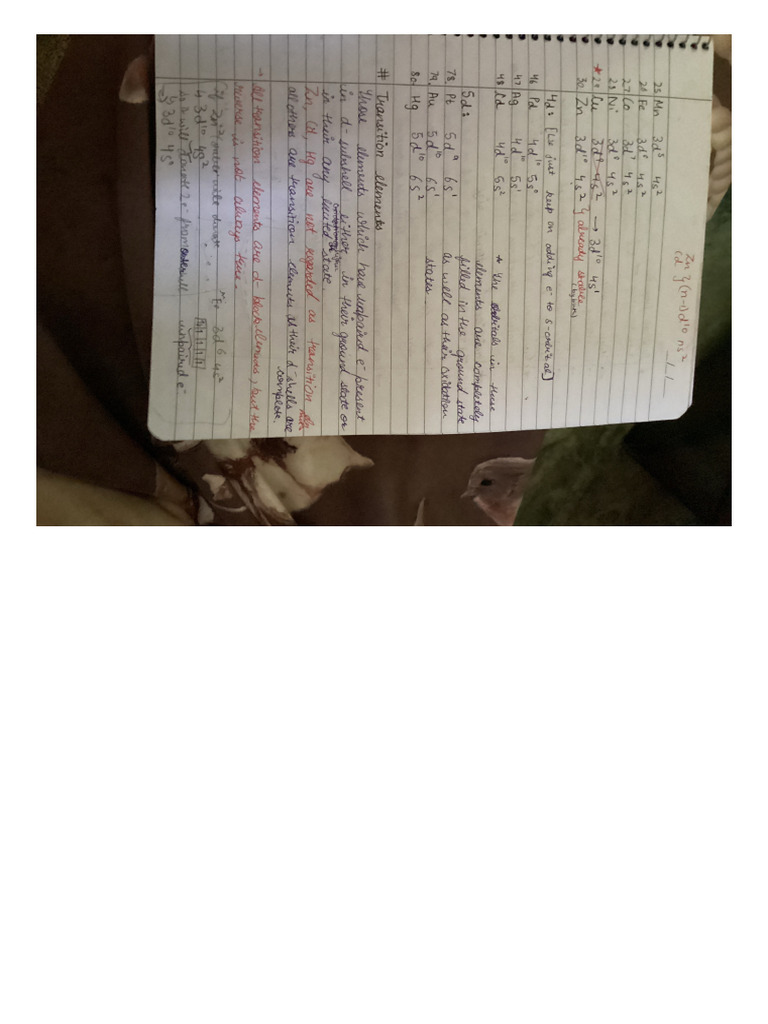 Zn
Cd } (n-1)d¹⁰ ns²
25 Mn 3d⁵ 4s²
26 Fe 3d⁶ 4s²
27 Co 3d⁷ 4s²
28 Ni 3d⁸ 4s²
* 29 Cu 3d⁹ 4s² → 3d¹⁰ 4s¹
30 Zn 3d¹⁰ 4s² } already stable
4d: [ just keep on adding e⁻ to s-orbital]
46 Pd 4d¹⁰ 5s⁰
47 Ag 4d¹⁰ 5s¹
48 Cd 4d¹⁰ 5s²
* The orbitals in these
elements are completely
filled in the ground state
as well as their oxidation
states.
5d:
78. Pt 5d⁹ 6s¹
79. Au 5d¹⁰ 6s¹
80. Hg 5d¹⁰ 6s²
# Transition elements
Those elements which have unpaired e⁻ present
in d-subshell either in their ground state or
in their any state.
Zn, Cd, Hg are not regarded as transition
all others are transition elements as their d-shells are
complete.
→ All transition elements are d-block elements, but the
reverse is not always true.
if Zn²⁺
↳ 3d¹⁰ 4s²
Fe 3d6 4s²
so it will 2e⁻ from
unpaired e⁻
↳ 3d¹⁰ 4s⁰